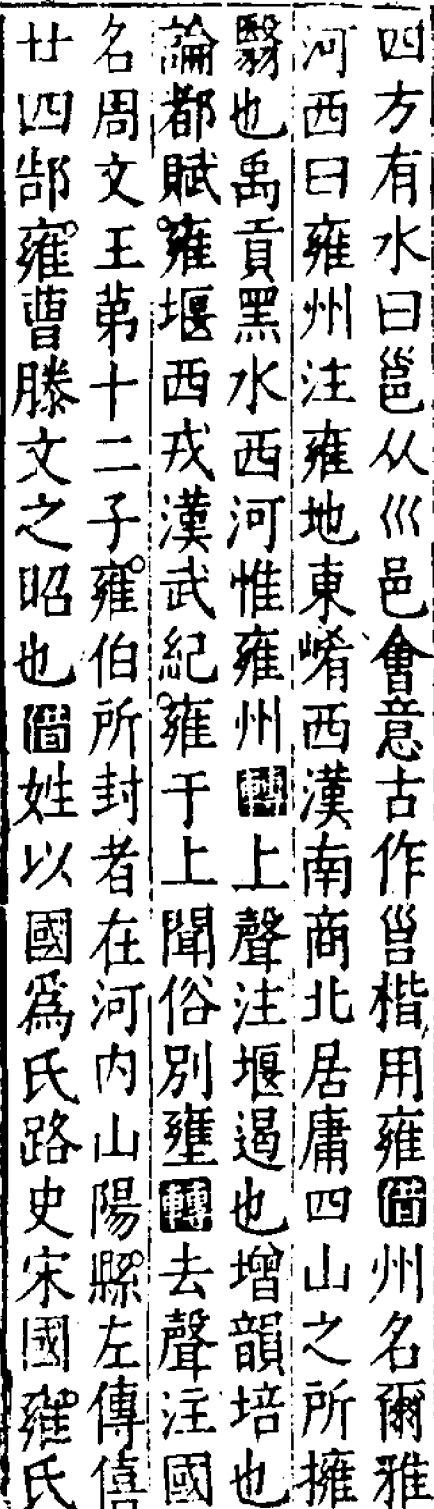 四方有水曰邕从巛邑會意古作邕楷用雍借州名爾雅
河西曰雍州注雍地東崤西漢南商北居庸四山之所擁
翳也禹貢黑水西河惟雍州轉上聲注堰遏也增韻培也
論都賦雍堰西戎漢武紀雍于上聞俗別壅轉去聲注國
名周文王苐十二子雍伯所封者在河内山陽縣左傳僖
廿四郜雍曹滕文之昭也借姓以國爲氏路史宋國雍氏